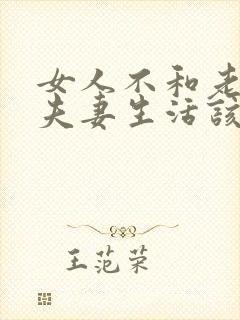 女人不和老
夫妻生活该
王范荣